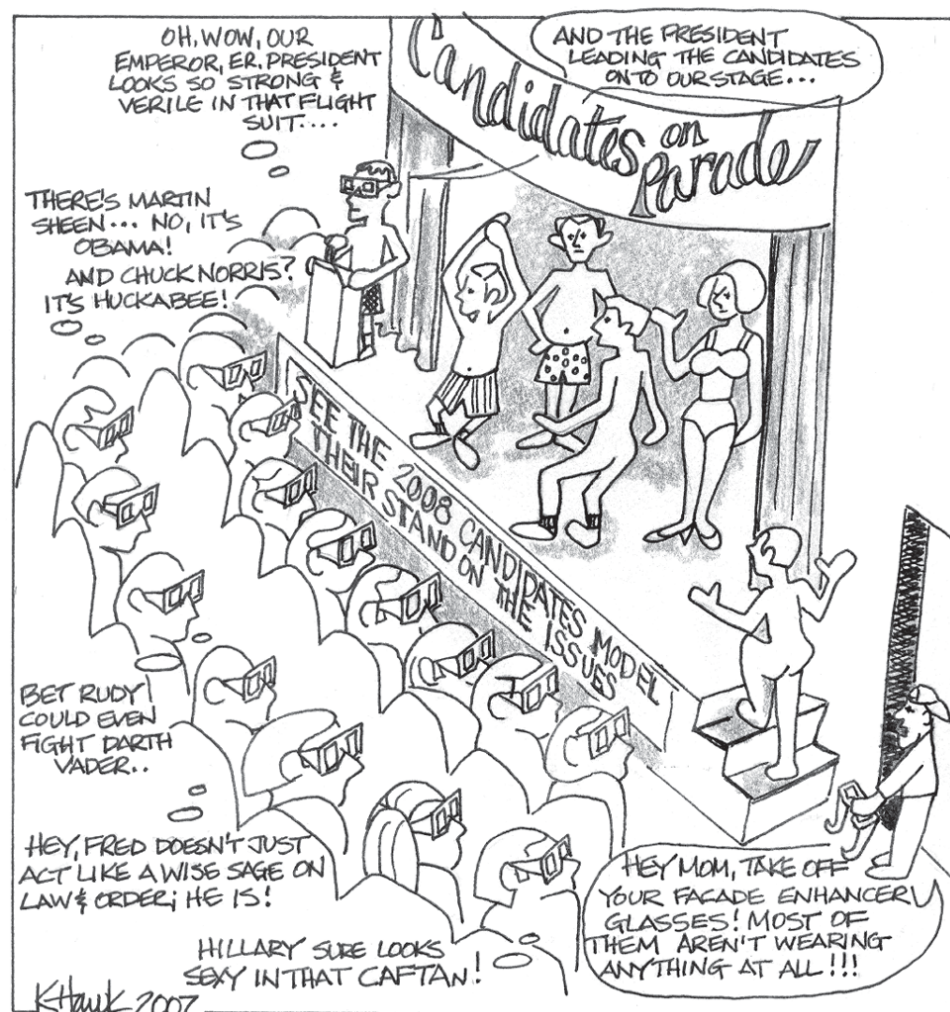 OH, WOW, OUR
EMPEROR, ER, PRESIDENT
LOOKS SO STRONG &
VERILE IN THAT FLIGHT
SUIT....
AND THE PRESIDENT
LEADING THE CANDIDATES
ONTO OUR STAGE...
Candidates on Parade
THERE'S MARTIN
SHEEN... NO, IT'S
OBAMA!
AND CHUCK NORRIS?
IT'S HUCKABEE!
SEE THE 2008 CANDIDATES MODEL
THEIR STAND ON THE ISSUES
BET RUDY
COULD EVEN
FIGHT DARTH
VADER..
HEY, FRED DOESN'T JUST
ACT LIKE A WISE SAGE ON
LAW & ORDER; HE IS!
HILLARY SURE LOOKS
SEXY IN THAT CAFTAN!
HEY MOM, TAKE OFF
YOUR FACADE ENHANCER
GLASSES! MOST OF
THEM AREN'T WEARING
ANYTHING AT ALL!!!
KHawk 2007